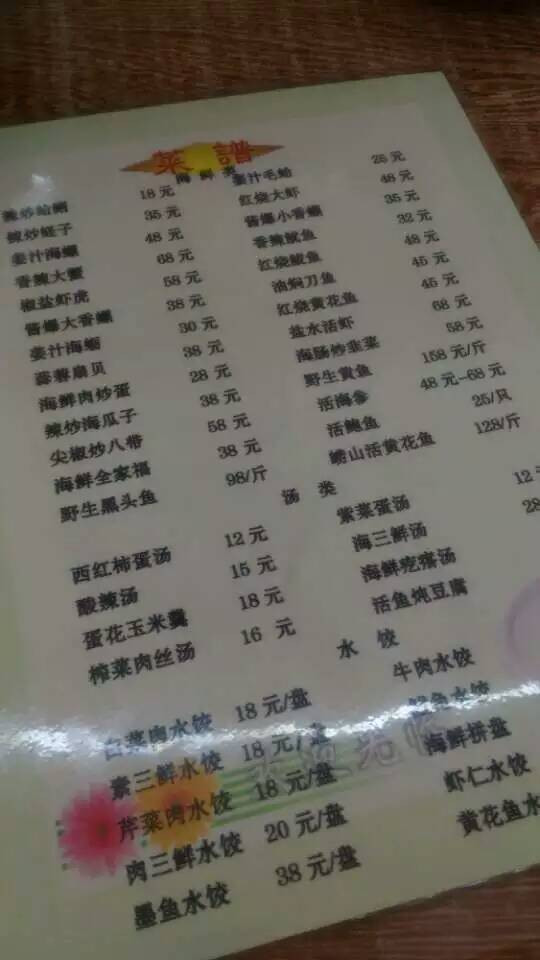 菜谱
海鲜类
辣炒蛤蜊 18元
辣炒蛏子 35元
姜汁海螺 48元
香辣大蟹 68元
椒盐虾虎 58元
酱爆大香螺 38元
姜汁海蛎 30元
蒜蓉扇贝 38元
海鲜肉炒蛋 28元
辣炒海瓜子 38元
尖椒炒八带 58元
海鲜全家福 38元
野生黑头鱼 98/斤
姜汁毛蛤 26元
红烧大虾 48元
酱爆小香螺 35元
香辣鱿鱼 32元
红烧鲅鱼 48元
油焖刀鱼 45元
红烧黄花鱼 45元
盐水活虾 68元
海肠炒韭菜 58元
野生黄鱼 158元/斤
活海参 48元--68元
活鲍鱼 25/只
崂山活黄花鱼 128/斤
汤类
西红柿蛋汤 12元
酸辣汤 15元
蛋花玉米羹 18元
榨菜肉丝汤 16元
紫菜蛋汤 12元
海三鲜汤 28
海鲜疙瘩汤
活鱼炖豆腐
水饺
白菜肉水饺 18元/盘
素三鲜水饺 18元/盘
芹菜肉水饺 18元/盘
肉三鲜水饺 20元/盘
墨鱼水饺 38元/盘
牛肉水饺
鱼水饺
海鲜拼盘
虾仁水饺
黄花鱼水